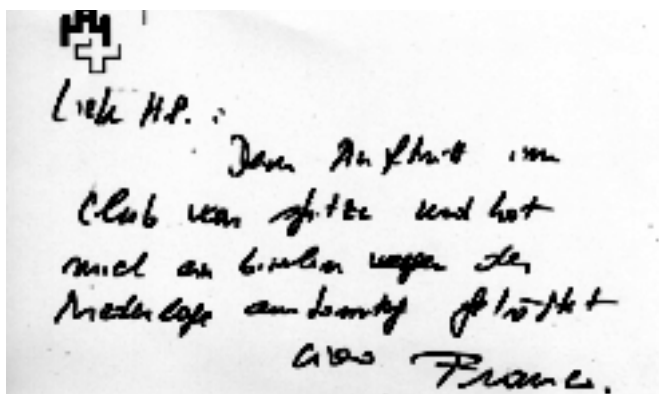 Lieber HP.:
Dein Auftritt im
Club war spitze und hat
mich ein bisschen wegen der
Niederlage am Sonntag getröstet
ciao Franco.